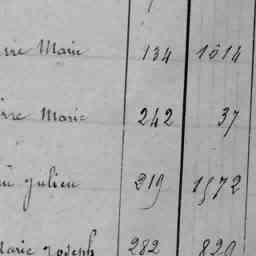 rre Marie 134 1014
rre Marie 242 37
Julien 219 1572
Marie Joseph 282 820